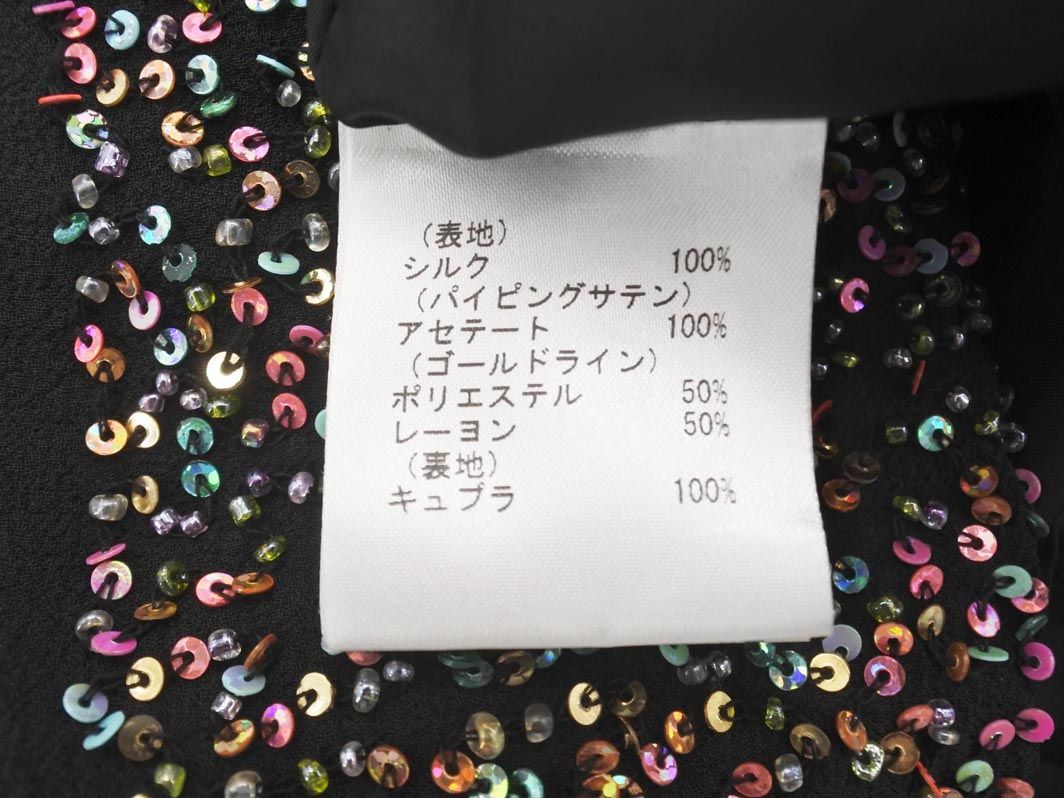 （表地）
シルク 100%
（パイピングサテン）
アセテート 100%
（ゴールドライン）
ポリエステル 50%
レーヨン 50%
（裏地）
キュプラ 100%